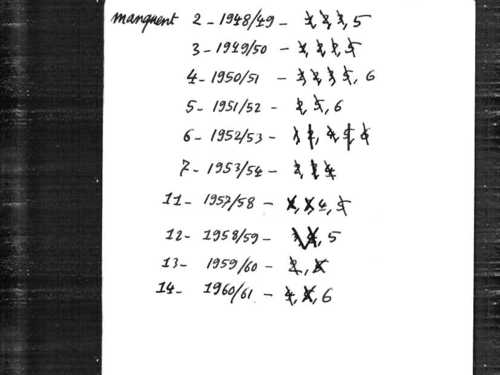 manquent 2 - 1948/49 - 1, 2, 3, 5
3 - 1949/50 - 1, 2, 5
4 - 1950/51 - 5, 6
5 - 1951/52 - 2, 5, 6
6 - 1952/53 - 1, 2, 4, 5, 6
7 - 1953/54 - 4
11 - 1957/58 - 4, 5
12 - 1958/59 - 5
13 - 1959/60 - 2,
14 - 1960/61 - 4, 6